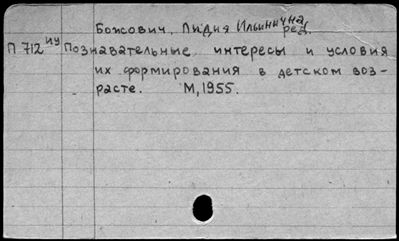 Божович, Лидия Ильинична, ред.
П 712 иу Познавательные интересы и условия
их формирования в детском воз-
расте. М, 1955.